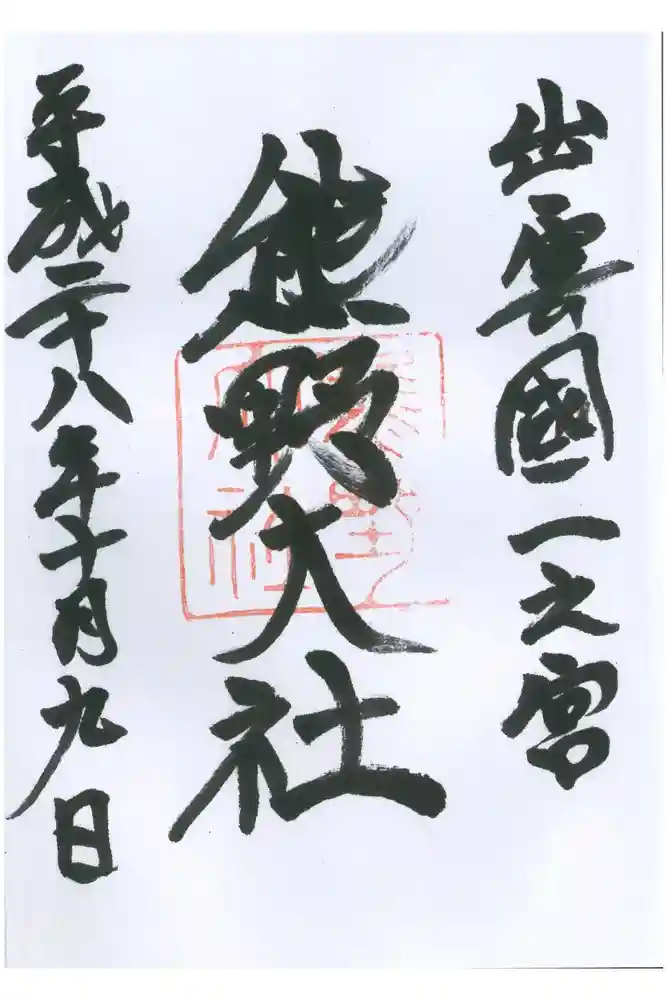 出雲國一之宮
熊野大社
平成二十八年十月九日